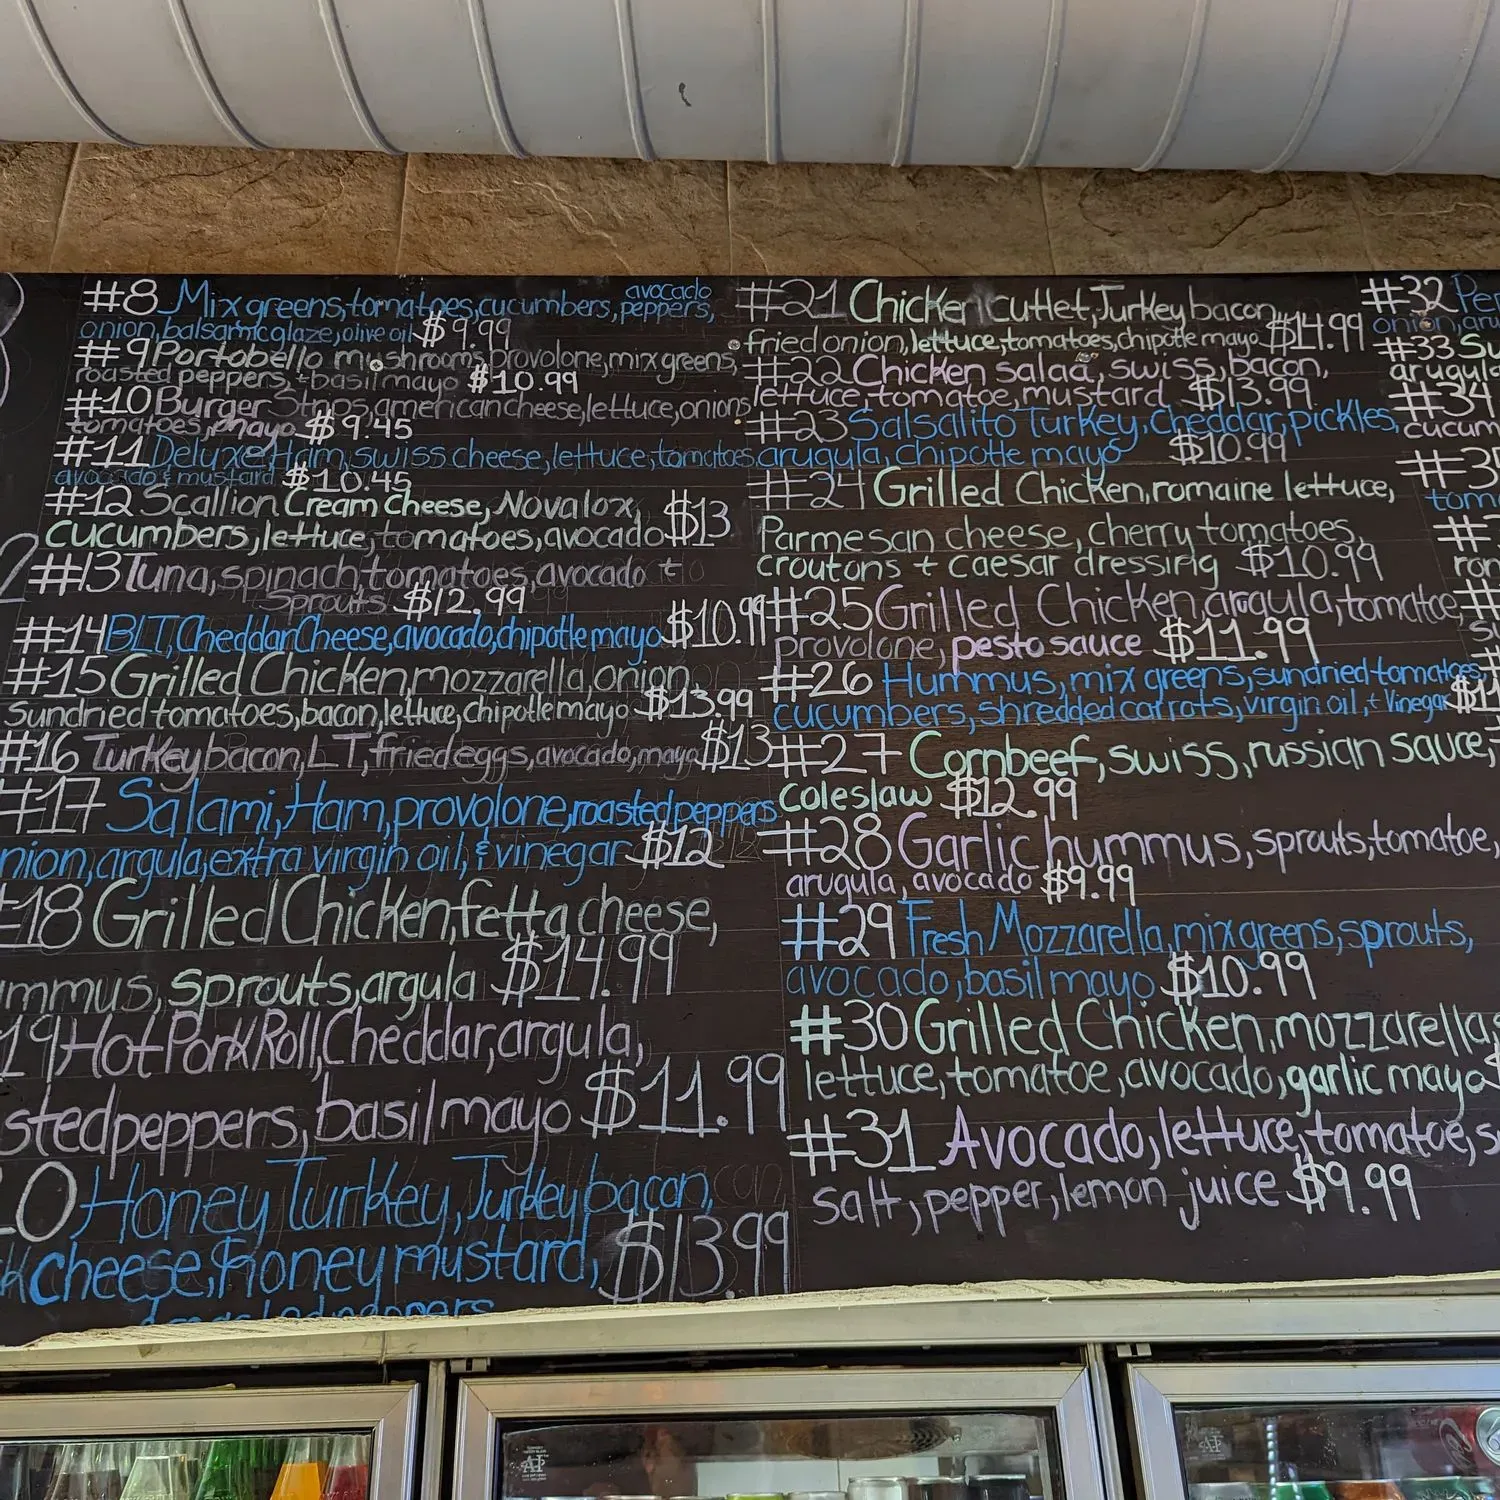 #8 Mix greens, tomatoes, cucumbers, peppers, avocado
onion, balsamic glaze, olive oil $9.99
#9 Portobello mushrooms, provolone, mix greens,
roasted peppers, + basil mayo $10.99
#10 Burger Strips, american cheese, lettuce, onions
tomatoes, mayo $9.45
#11 Deluxe Ham, swiss cheese, lettuce, tomatoes,
avocado + mustard $10.45
#12 Scallion Cream Cheese, Nova lox,
cucumbers, lettuce, tomatoes, avocado $13
#13 Tuna, spinach, tomatoes, avocado +
Sprouts $12.99
#14 BLT, Cheddar Cheese, avocado, chipotle mayo $10.99
#15 Grilled Chicken, mozzarella, onion,
Sundried tomatoes, bacon, lettuce, chipotle mayo $13.99
#16 Turkey bacon, L T, fried eggs, avocado, mayo $13
#17 Salami, Ham, provolone, roasted peppers
nion, argula, extra virgin oil, & vinegar $12
#18 Grilled Chicken, fetta cheese,
mmus, sprouts, argula $14.99
19 Hot Pork Roll, Cheddar, argula,
sted peppers, basil mayo $11.99
0 Honey Turkey, Turkey bacon,
k cheese, honey mustard, $13.99
peppers
#21 Chicken cutlet, Turkey bacon,
fried onion, lettuce, tomatoes, chipotle mayo $14.99
#22 Chicken salad, swiss, bacon,
lettuce, tomatoe, mustard $13.99
#23 Salsalito Turkey, cheddar, pickles,
arugula, chipotle mayo $10.99
#24 Grilled Chicken, romaine lettuce,
Parmesan cheese, cherry tomatoes,
croutons + caesar dressing $10.99
#25 Grilled Chicken, argula, tomatoe,
provolone, pesto sauce $11.99
#26 Hummus, mix greens, sundried tomatoes,
cucumbers, shredded carrots, virgin oil, + Vinegar $1
#27 Cornbeef, swiss, russian sauce,
coleslaw $12.99
#28 Garlic hummus, sprouts, tomatoe,
arugula, avocado $9.99
#29 Fresh Mozzarella, mix greens, sprouts,
avocado, basil mayo $10.99
#30 Grilled Chicken, mozzarella,
lettuce, tomatoe, avocado, garlic mayo $
#31 Avocado, lettuce, tomatoe, s
salt, pepper, lemon juice $9.99
#32 Pe
onion, aru
#33 Su
arugula
#34
cucum
#3
tomo
#
ron
#